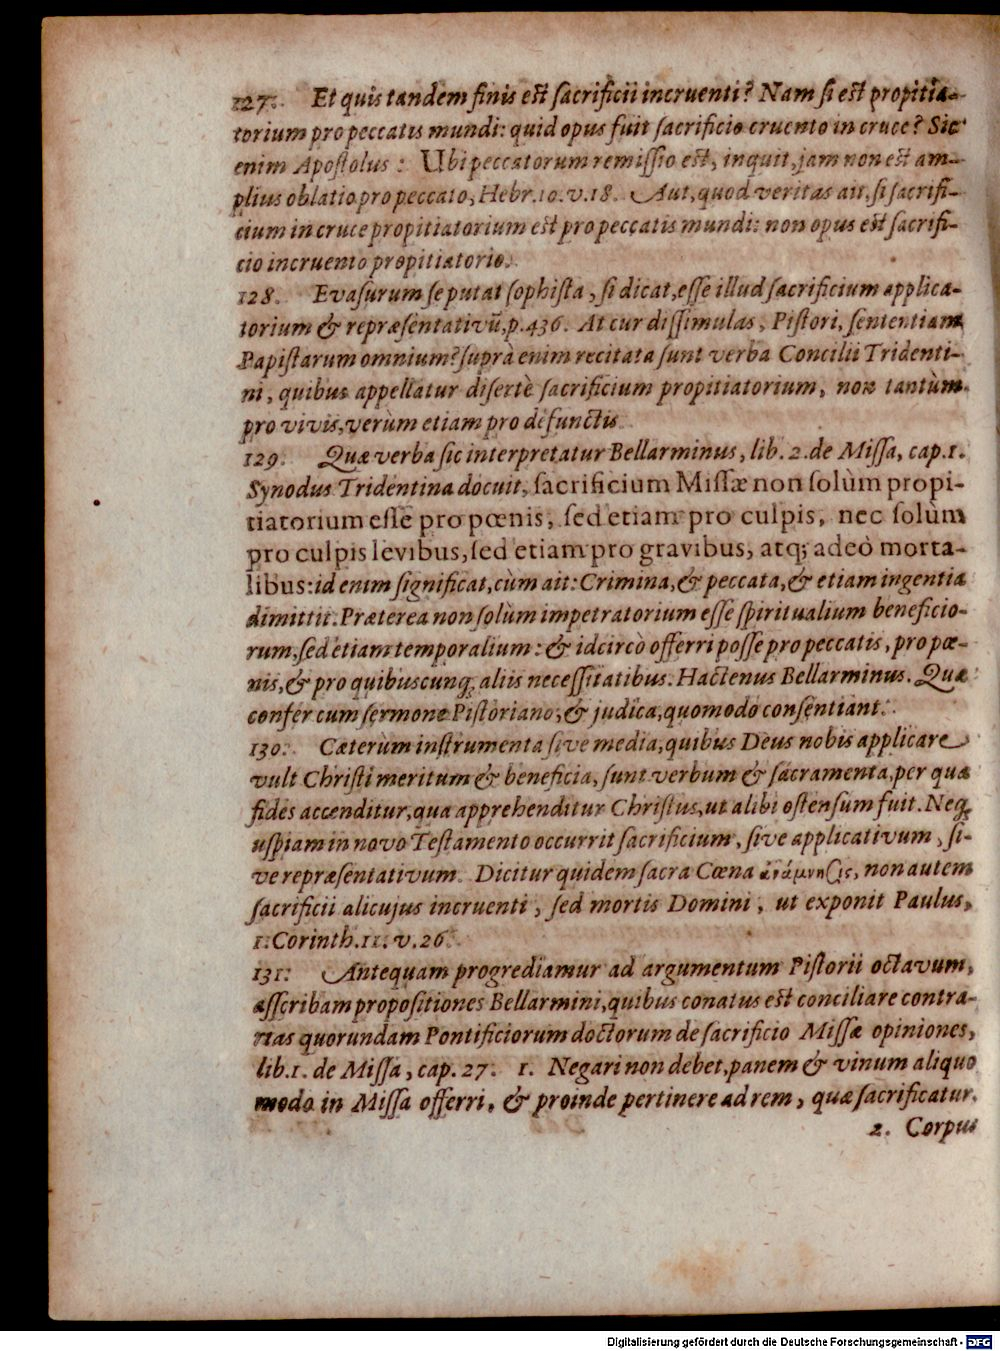 127. Et quis tandem finis est sacrificii incruenti? Nam si est propitia-
torium pro peccatis mundi: quid opus fuit sacrificio cruento in cruce? Sic
enim Apostolus: Ubi peccatorum remissio est, inquit, jam non est am-
plius oblatio pro peccato, Hebr. 10. v. 18. Aut, quod veritas ait, si sacrifi-
cium in cruce propitiatorium est pro peccatis mundi: non opus est sacrifi-
cio incruento propitiatorio.
128. Evasurum se putat sophista, si dicat, esse illud sacrificium applica-
torium & repræsentativũ, p. 436. At cur dissimulas, Pistori, sententiam
Papistarum omnium? suprà enim recitata sunt verba Concilii Tridenti-
ni, quibus appellatur disertè sacrificium propitiatorium, non tantùm
pro vivis, verùm etiam pro defunctis.
129. Quæ verba sic interpretatur Bellarminus, lib. 2. de Missa, cap. 1.
Synodus Tridentina docuit, sacrificium Missæ non solùm propi-
tiatorium esse pro pœnis, sed etiam pro culpis, nec solùm
pro culpis levibus, sed etiam pro gravibus, atq; adeò morta-
libus: id enim significat, cùm ait: Crimina, & peccata, & etiam ingentia
dimittit. Præterea non solùm impetratorium esse spiritualium beneficio-
rum, sed etiam temporalium: & idcircò offerri posse pro peccatis, pro pœ-
nis, & pro quibuscunq; aliis necessitatibus. Hactenus Bellarminus. Quæ
confer cum sermone Pistoriano, & judica, quomodo consentiant.
130. Cæterùm instrumenta sive media, quibus Deus nobis applicare
vult Christi meritum & beneficia, sunt verbum & sacramenta, per quæ
fides accenditur, qua apprehenditur Christus, ut alibi ostensum fuit. Neq;
uspiam in novo Testamento occurrit sacrificium, sive applicativum, si-
ve repræsentativum. Dicitur quidem sacra Cœna ἀνάμνησις, non autem
sacrificii alicujus incruenti, sed mortis Domini, ut exponit Paulus,
1. Corinth. 11. v. 26.
131. Antequam progrediamur ad argumentum Pistorii octavum,
asscribam propositiones Bellarmini, quibus conatus est conciliare contra-
rias quorundam Pontificiorum doctorum de sacrificio Missæ opiniones,
lib. 1. de Missa, cap. 27. 1. Negari non debet, panem & vinum aliquo
modo in Missa offerri, & proinde pertinere ad rem, quæ sacrificatur.
2. Corpus
Digitalisierung gefördert durch die Deutsche Forschungsgemeinschaft - DFG